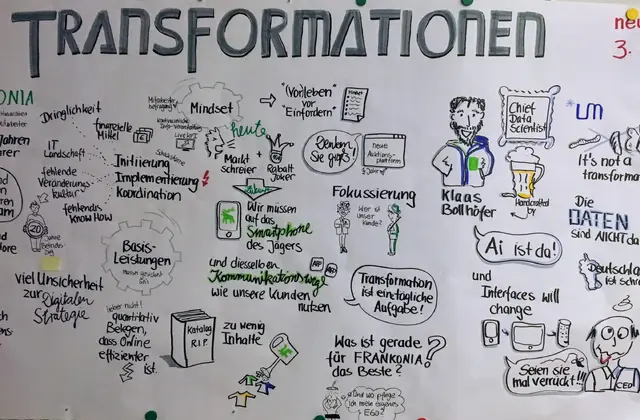 TRANSFORMATIONEN
neu
3.
ONIA
Dringlichkeit
finanzielle
Mittel
IT
Landschaft
fehlende
Veränderungs-
kultur
fehlendes
Know How
20
Initiierung
Implementierung
Koordination
Mindset
"(Vor)leben"
vor
"Einfordern"
heute
Markt
schreier
Rabatt
Joker
Denken
Sie groß!
Zukunft
Wir müssen
auf das
Smartphone
des Jägers
und dieselben
Kommunikationswege
wie unsere Kunden
nutzen
APP
APP
Fokussierung
Wer ist
unser
Kunde?
Transformation
ist eine tägliche
Aufgabe!
Basis-
Leistungen
viel Unsicherheit
zur
Digitalen
Strategie
lieber nicht!
quantitativ
Belegen,
dass Online
effizienter
ist.
Katalog
R.I.P.
zu wenig
Inhalte
Was ist gerade
für FRANKONIA
das Beste?
Klaas
Bollhöfer
Chief
Data
Scientist
Handcrafted
by
Ai ist da!
und
Interfaces will
change
Seien sie
mal verrückt!!!
CEO
*UM
It's not a
transforma
Die
DATEN
sind NICHT da
Deutschla
ist schre